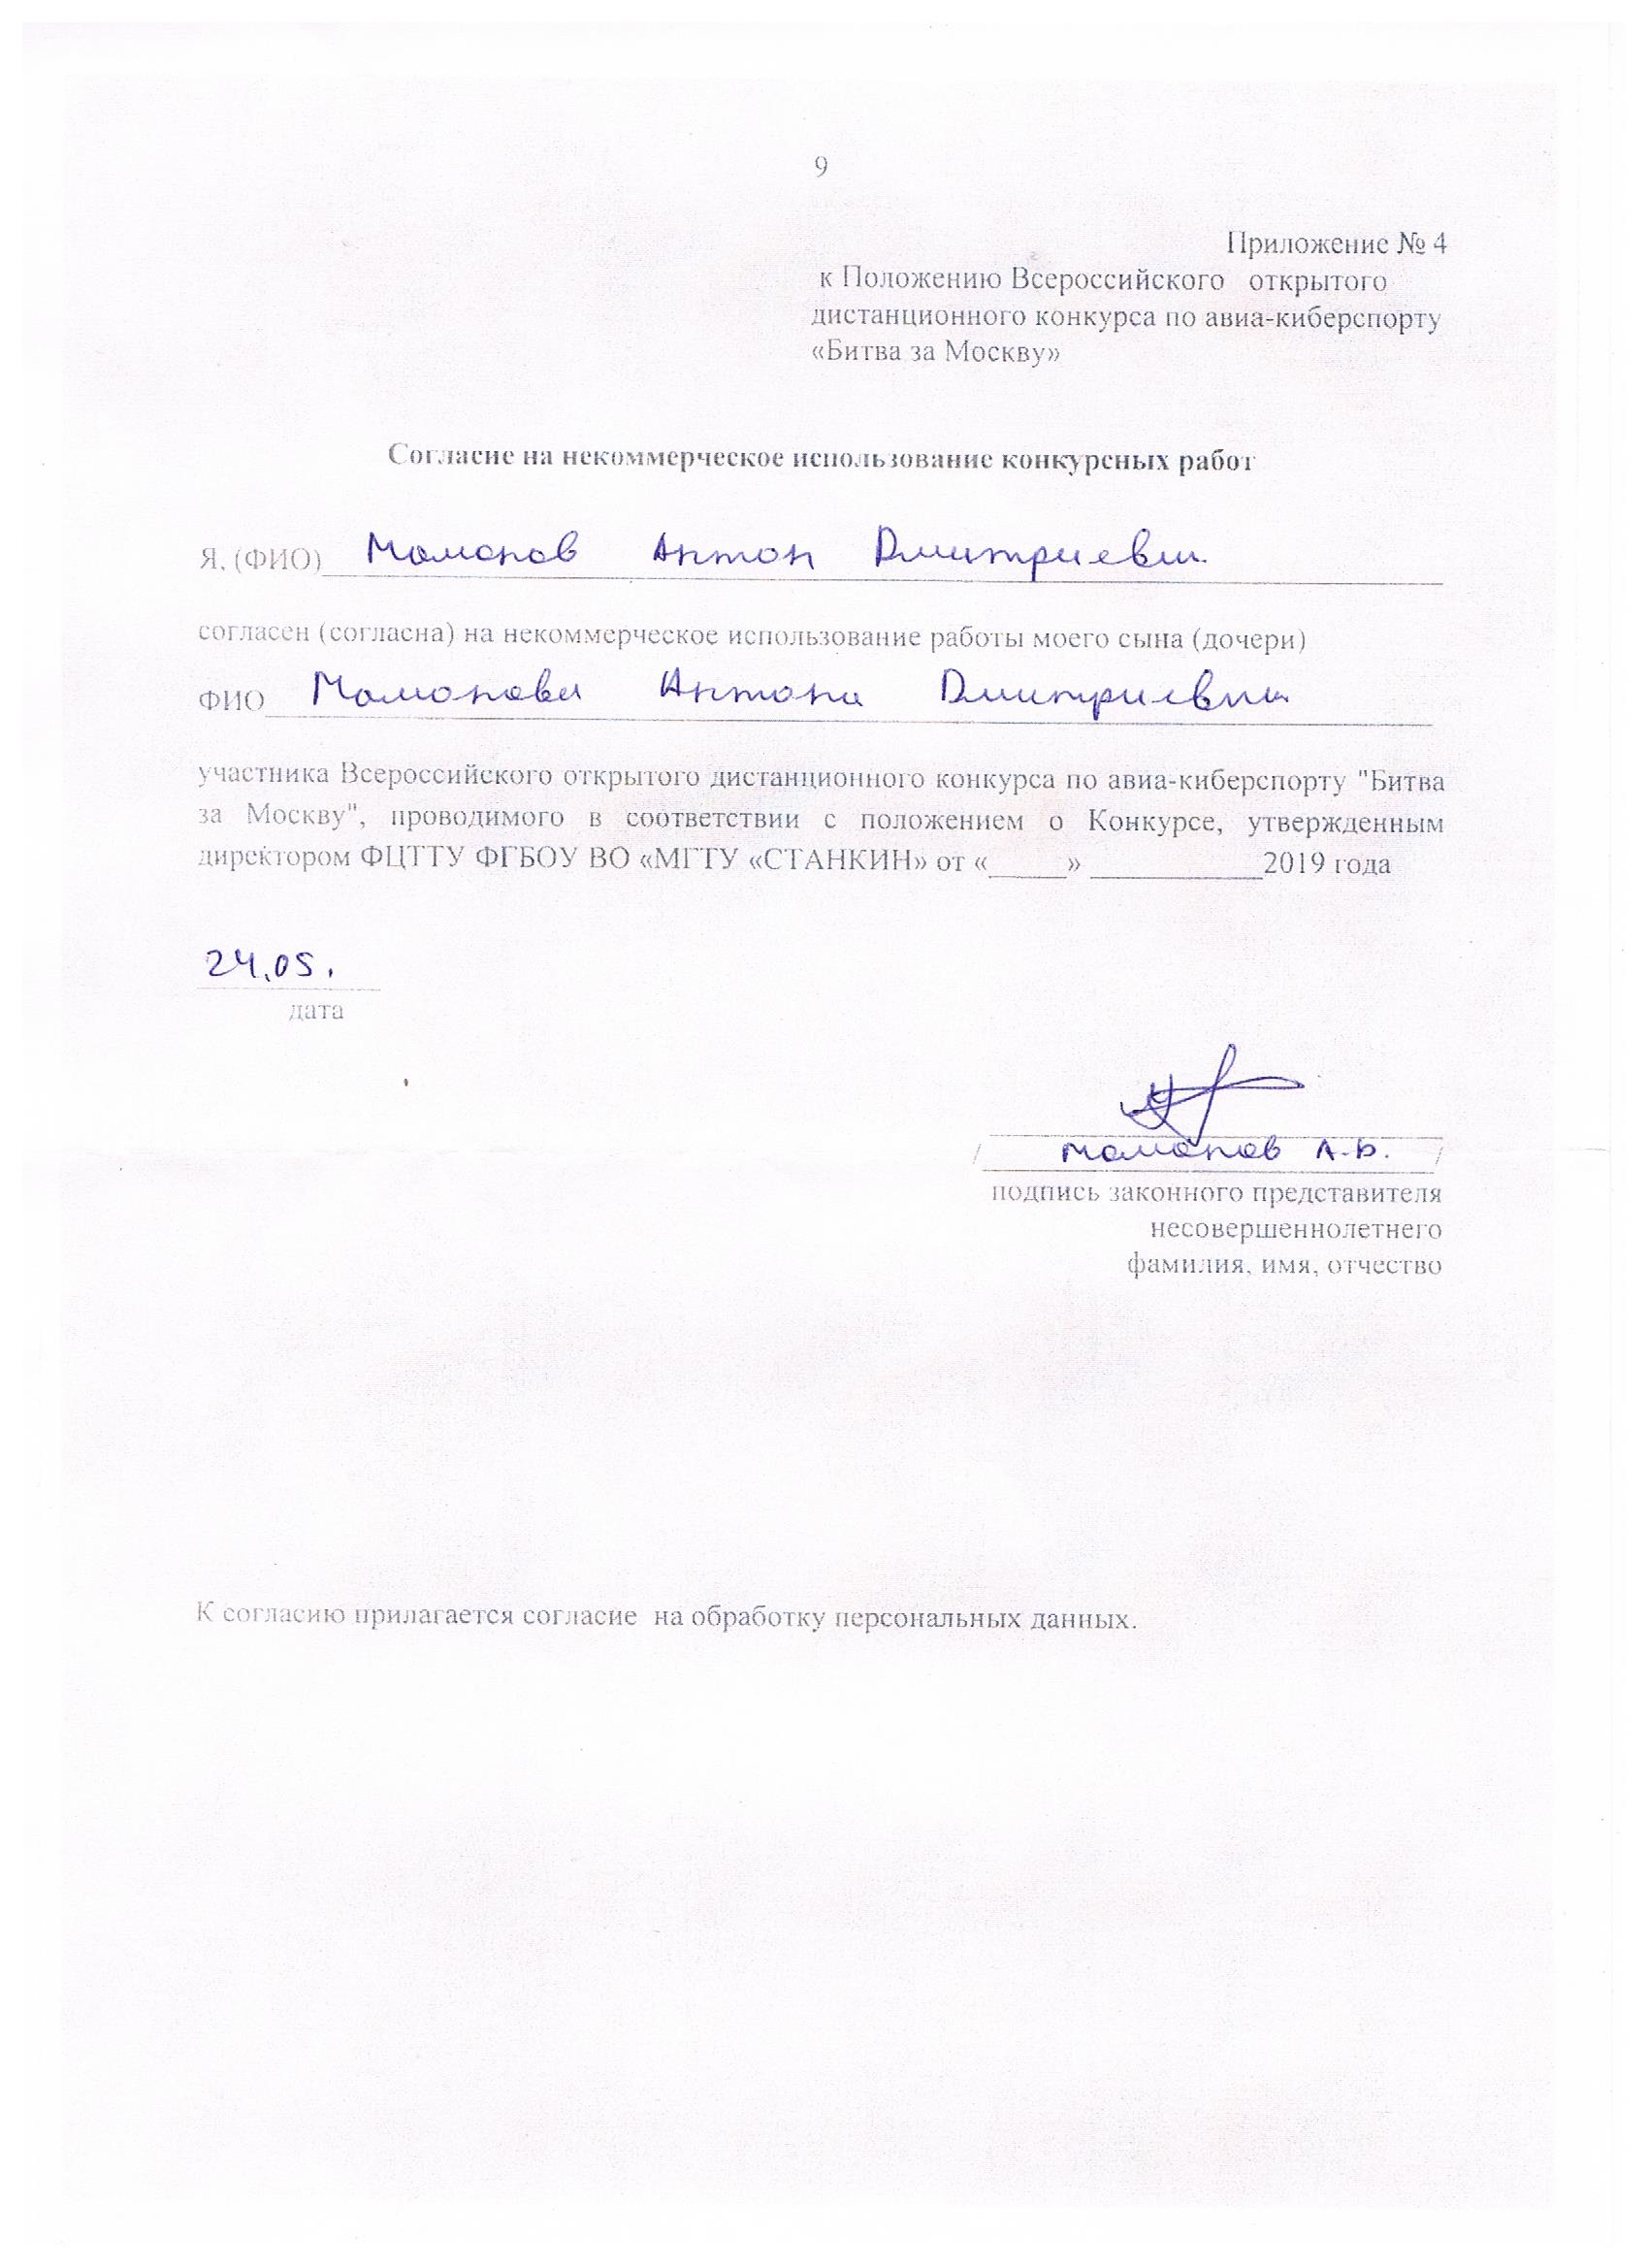 9
Приложение № 4
к Положению Всероссийского открытого
дистанционного конкурса по авиа-киберспорту
«Битва за Москву»
Согласие на некоммерческое использование конкурсных работ
Я, (ФИО) Мамонов Антон Дмитриевич
согласен (согласна) на некоммерческое использование работы моего сына (дочери)
ФИО Мамонова Антона Дмитриевича
участника Всероссийского открытого дистанционного конкурса по авиа-киберспорту "Битва
за Москву", проводимого в соответствии с положением о Конкурсе, утвержденным
директором ФЦТТУ ФГБОУ ВО «МГТУ «СТАНКИН» от «_____» ___________2019 года
24.05.
дата
/ Мамонов А.Д. /
подпись законного представителя
несовершеннолетнего
фамилия, имя, отчество
К согласию прилагается согласие на обработку персональных данных.